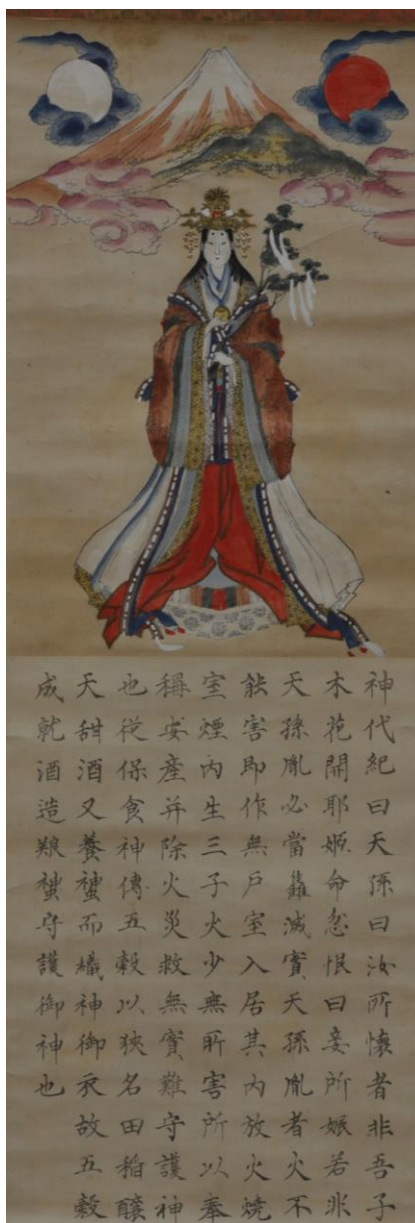 神代紀曰天孫曰汝所懐者非吾子
木花開耶姫命忿恨曰妾所娠若非
天孫胤必當滅實天孫胤者火不
能害即作無戸室入居其内放火焼
室煙内生三子火少無所害所以奉
稱安産并除火災救無實難守護神
也従保食神傳五穀以狭名田稲醸
天甜酒又養蠶而織神御衣故五穀
成就酒造蠶守護御神也